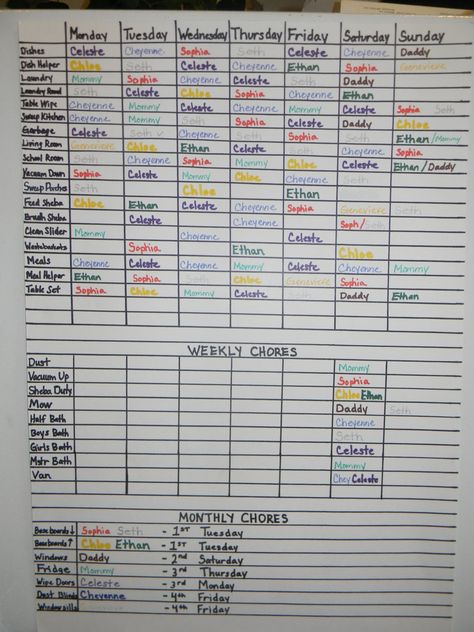 Monday Tuesday Wednesday Thursday Friday Saturday Sunday
Dishes Celeste Cheyenne Sophia Seth Celeste Cheyenne Daddy
Dish Helper Chloe Seth Celeste Cheyenne Ethan Sophia Genevieve
Laundry Mommy Sophia Cheyenne Celeste Seth Daddy
Laundry Seth Celeste Chloe Sophia Cheyenne Ethan
Table Wipe Cheyenne Mommy Celeste Cheyenne Mommy Celeste Sophia Seth
Sweep Kitchen Cheyenne Mommy Seth Sophia Celeste Daddy Chloe
Garbage Celeste Seth Cheyenne Seth Sophia Seth Ethan/Mommy
Living Room Genevieve Chloe Ethan Celeste Seth Cheyenne Sophia
School Room Seth Cheyenne Sophia Mommy Chloe Celeste Ethan/Daddy
Vacuum Down Sophia Celeste Mommy Chloe Cheyenne Seth
Sweep Porches Seth Chloe Ethan
Feed Sheba Chloe Ethan Celeste Cheyenne Sophia Genevieve Seth
Brush Sheba Celeste Cheyenne Soph/Seth
Clean Slider Mommy Cheyenne Celeste
Wastebaskets Sophia Ethan Chloe
Meals Cheyenne Celeste Cheyenne Mommy Celeste Cheyenne Mommy
Meal Helper Ethan Sophia Seth Chloe Genevieve Sophia
Table Set Sophia Chloe Mommy Celeste Seth Daddy Ethan
WEEKLY CHORES
Dust Mommy
Vacuum Up Sophia
Sheba Duty Chloe Ethan
Mow Daddy Seth
Half Bath Cheyenne
Boys Bath Seth
Girls Bath Celeste
Mstr Bath Mommy
Van Chey Celeste
MONTHLY CHORES
Baseboards↓ Sophia Seth - 1ST Tuesday
Baseboards↑ Chloe Ethan - 1ST Tuesday
Windows Daddy - 2nd Saturday
Fridge Mommy - 3rd Thursday
Wipe Doors Celeste - 3rd Monday
Dust Blinds Cheyenne - 4th Friday
Windowsills - 4th Friday